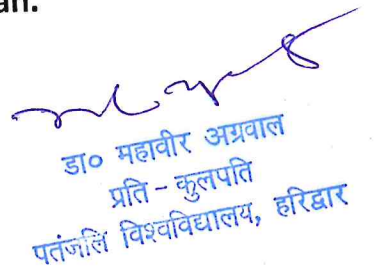 an.
डा० महावीर अग्रवाल
प्रति - कुलपति
पतंजलि विश्वविद्यालय, हरिद्वार